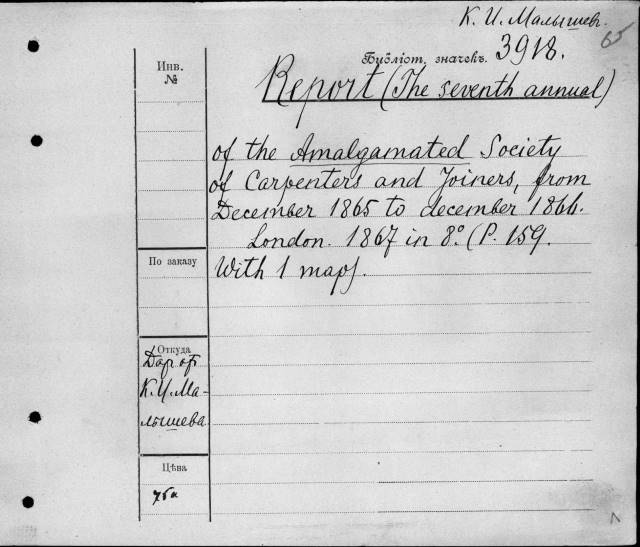 К. И. Малышев.
65
Библіот. значекъ. 3918.
Report (The seventh annual)
of the Amalgamated Society
of Carpenters and Joiners, from
December 1865 to december 1866.
London. 1867 in 8º. (P. 159.
With 1 map).
Инв.
№
По заказу
Откуда
Дар от
К. И. Ма-
лышева
Цѣна